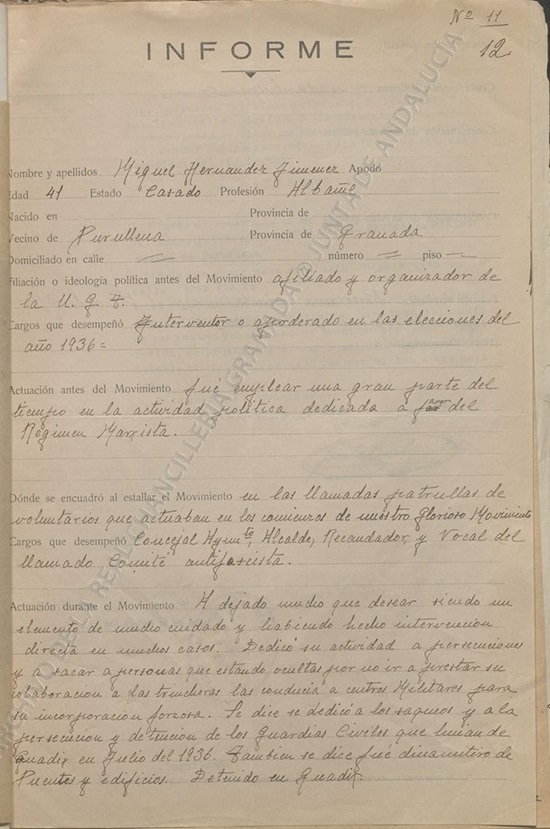 Nº 11
12
INFORME
Nombre y apellidos Miguel Hernandez Jimenez Apodo
Edad 41 Estado Casado Profesión Albañil
Nacido en Provincia de
Vecino de Purullena Provincia de Granada
Domiciliado en calle = número = piso =
Filiación o ideología política antes del Movimiento afiliado y organizador de
la U. G. T.
Cargos que desempeñó Interventor o apoderado en las elecciones del
año 1936=
Actuación antes del Movimiento fué emplear una gran parte del
tiempo en la actividad politica dedicada a favor del
Régimen Marxista.
Dónde se encuadró al estallar el Movimiento en las llamadas patrullas de
voluntarios que actuaban en los comienzos de nuestro Glorioso Movimiento
Cargos que desempeñó Concejal Aymto, Alcalde, Recaudador, y Vocal del
llamado Comité antifascista.
Actuación durante el Movimiento A dejado mucho que desear siendo un
elemento de mucho cuidado y habiendo hecho intervencion
directa en muchos casos. Dedicó su actividad a persecuciones
y a sacar a personas que estando ocultas por no ir a prestar su
colaboracion a las trincheras las conducia a centros Militares para
su incorporación forzosa. Se dice se dedicó a los saqueos y a la
persecucion y detencion de los Guardias Civiles que huian de
Guadix en Julio del 1936. Tambien se dice fué dinamitero de
Puentes y edificios. Detenido en Guadix.
ARCHIVO DE LA REAL CHANCILLERÍA GRANADA © JUNTA DE ANDALUCÍA